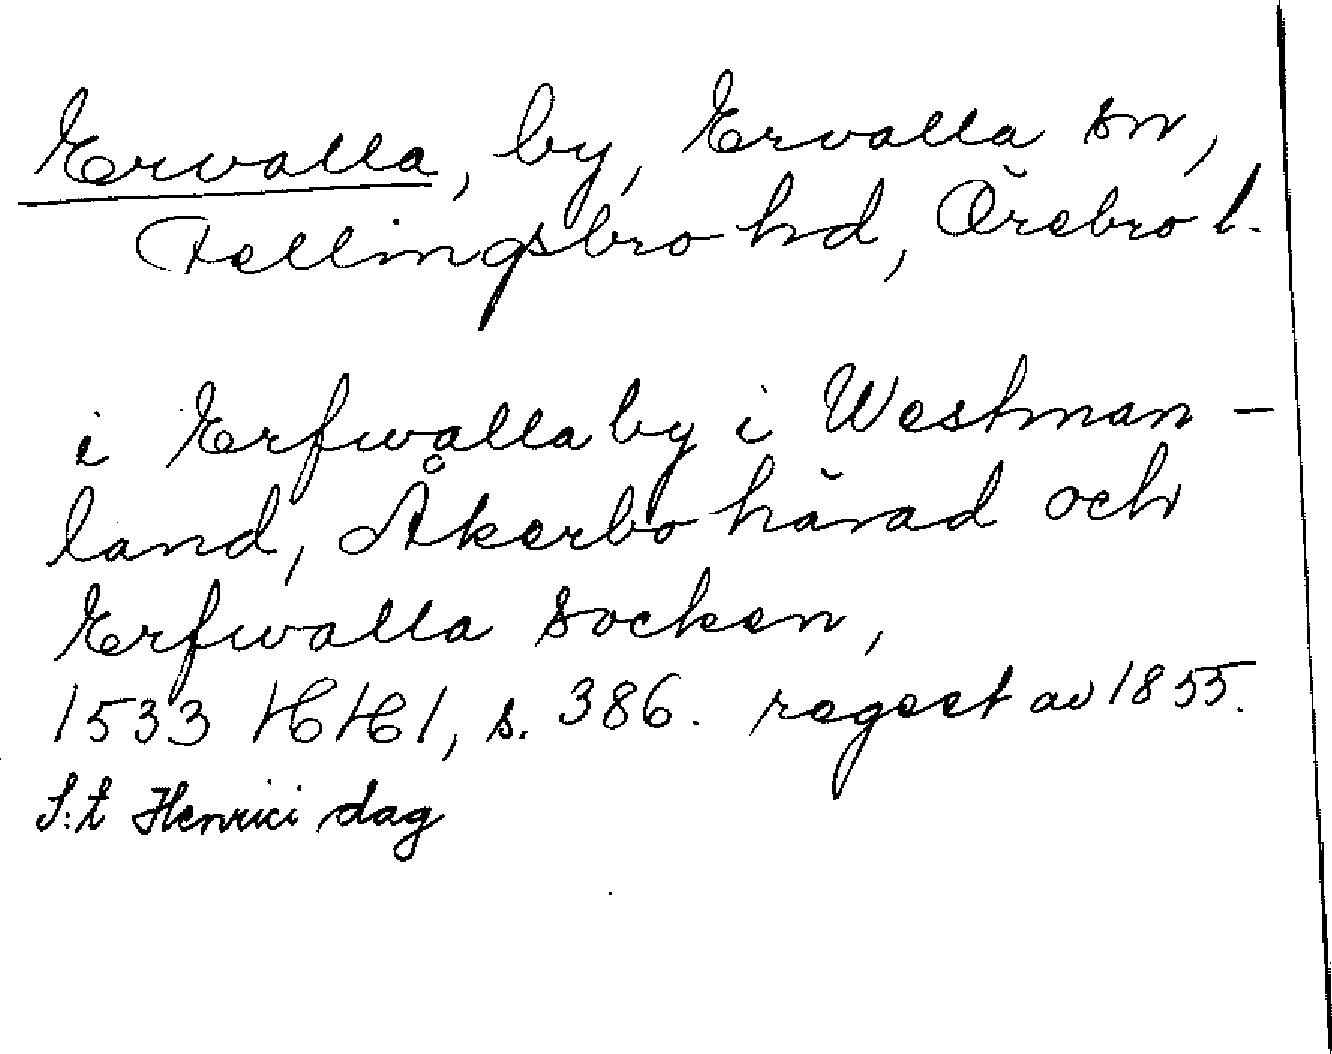 Ervalla, by, Ervalla sn,
Fellingsbro hd, Örebro l.
i Erfwalla by i Westman-
land, Åkerbo härad och
Erfwalla socken,
1533 HH1, s. 386. regest av 1855.
S:t Henrici dag